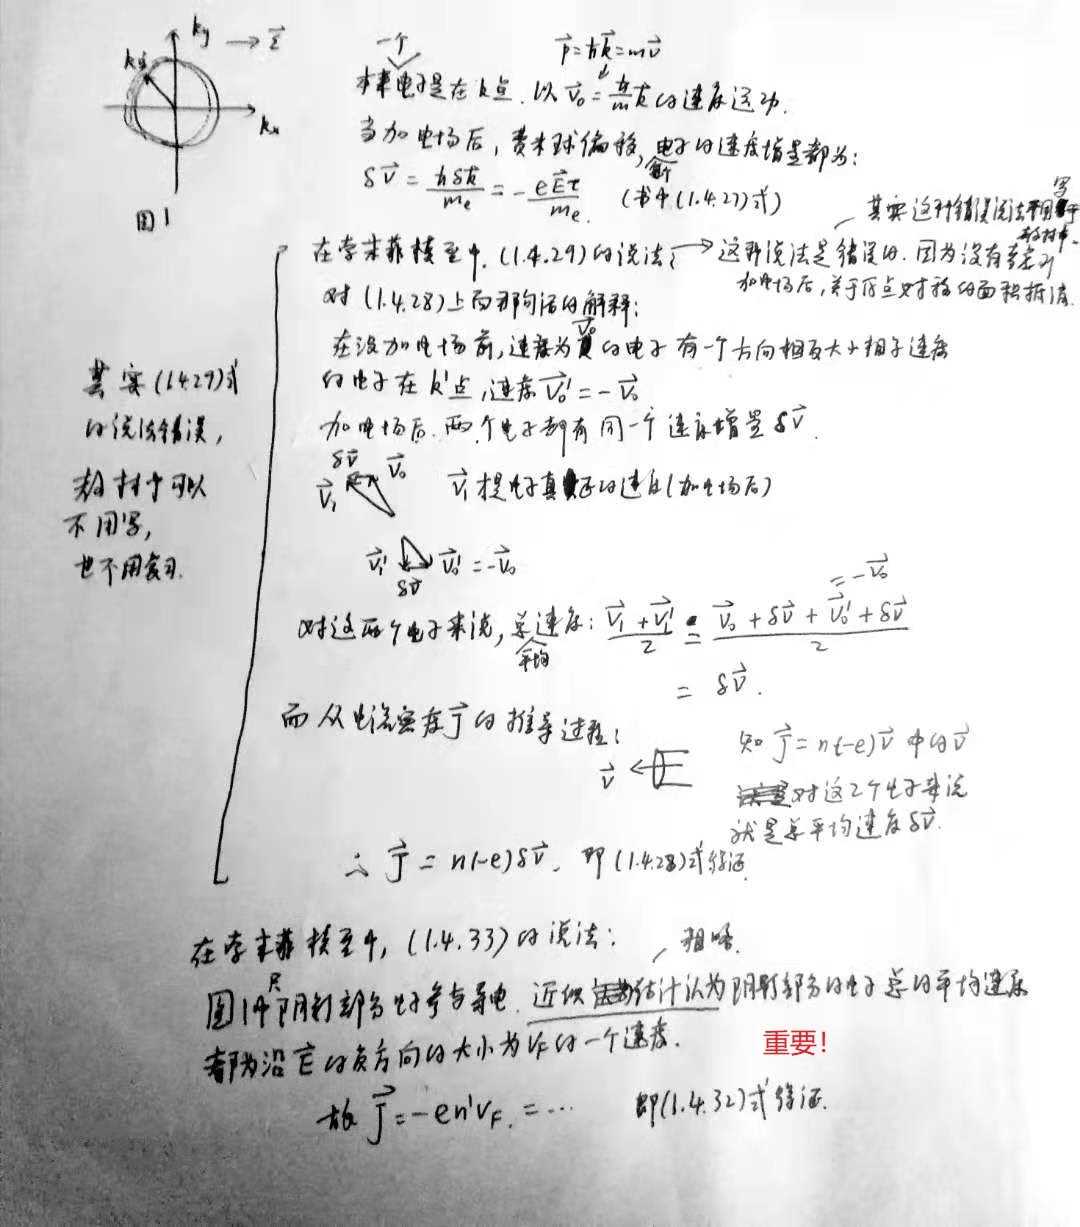 k_y → \vec{ε}
k_x
图1
一个
\vec{p}=ħ\vec{k}=m\vec{v}
本来电子是在k点,以\vec{v}_0=\frac{ħ}{m}\vec{k}的速度运动.
当加电场后,费米球偏移,每个电子的速度增量都为:
δ\vec{v}=\frac{ħδ\vec{k}}{m_e}=-\frac{e\vec{E}τ}{m_e} (书中(1.4.27)式)
其实这种错误说法不用写于教材中.
在索末菲模型中,(1.4.29)的说法: → 这种说法是错误的.因为没有考虑到
加电场后,关于原点对称的面积抵消.
对(1.4.28)上面那句话的解释:
在没加电场前,速度为\vec{v}_0的电子有一个方向相反大小相等速度
的电子在k'点,速度\vec{v}_0'=-\vec{v}_0
加电场后.两个电子都有同一个速度增量δ\vec{v}.
其实(1.4.29)式
的说法错误,
教材中可以
不用写,
也不用复习.
δ\vec{v} \vec{v}_0
\vec{v}_1 \vec{v}_1指电子真正的速度(加电场后)
\vec{v}_1' \vec{v}_0'=-\vec{v}_0
δ\vec{v}
=-\vec{v}_0
对这两个电子来说,总平均速度:\frac{\vec{v}_1+\vec{v}_1'}{2}=\frac{\vec{v}_0+δ\vec{v}+\vec{v}_0'+δ\vec{v}}{2}
=δ\vec{v}.
而从电流密度\vec{J}的推导过程:
\vec{v}
知\vec{J}=n(-e)\vec{v}中的\vec{v}
对这2个电子来说
就是总平均速度δ\vec{v}.
∴\vec{J}=n(-e)δ\vec{v}. 即(1.4.28)式得证
在索末菲模型中,(1.4.33)的说法: 粗略.
图1中只阴影部分电子参与导电.近似估计认为阴影部分的电子总的平均速度
都为沿\vec{E}的负方向的大小为v_F的一个速度.
重要!
故\vec{J}=-en'v_F.=… 即(1.4.32)式得证.